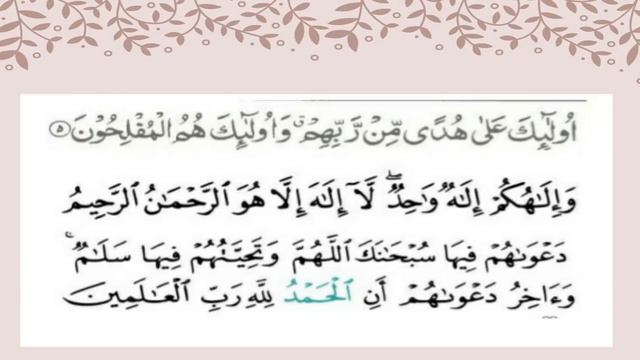 اُولٰٓئِكَ عَلٰى هُدًى مِّنْ رَّبِّهِمْ ۙ وَاُولٰٓئِكَ هُمُ الْمُفْلِحُوْنَ ۝٥
وَإِلَـٰهُكُمْ إِلَـٰهٌ وَٰحِدٌ ۖ لَّآ إِلَـٰهَ إِلَّا هُوَ ٱلرَّحْمَـٰنُ ٱلرَّحِيمُ
دَعْوَىٰهُمْ فِيهَا سُبْحَـٰنَكَ ٱللَّهُمَّ وَتَحِيَّتُهُمْ فِيهَا سَلَـٰمٌ ۚ
وَءَاخِرُ دَعْوَىٰهُمْ أَنِ ٱلْحَمْدُ لِلَّهِ رَبِّ ٱلْعَـٰلَمِينَ